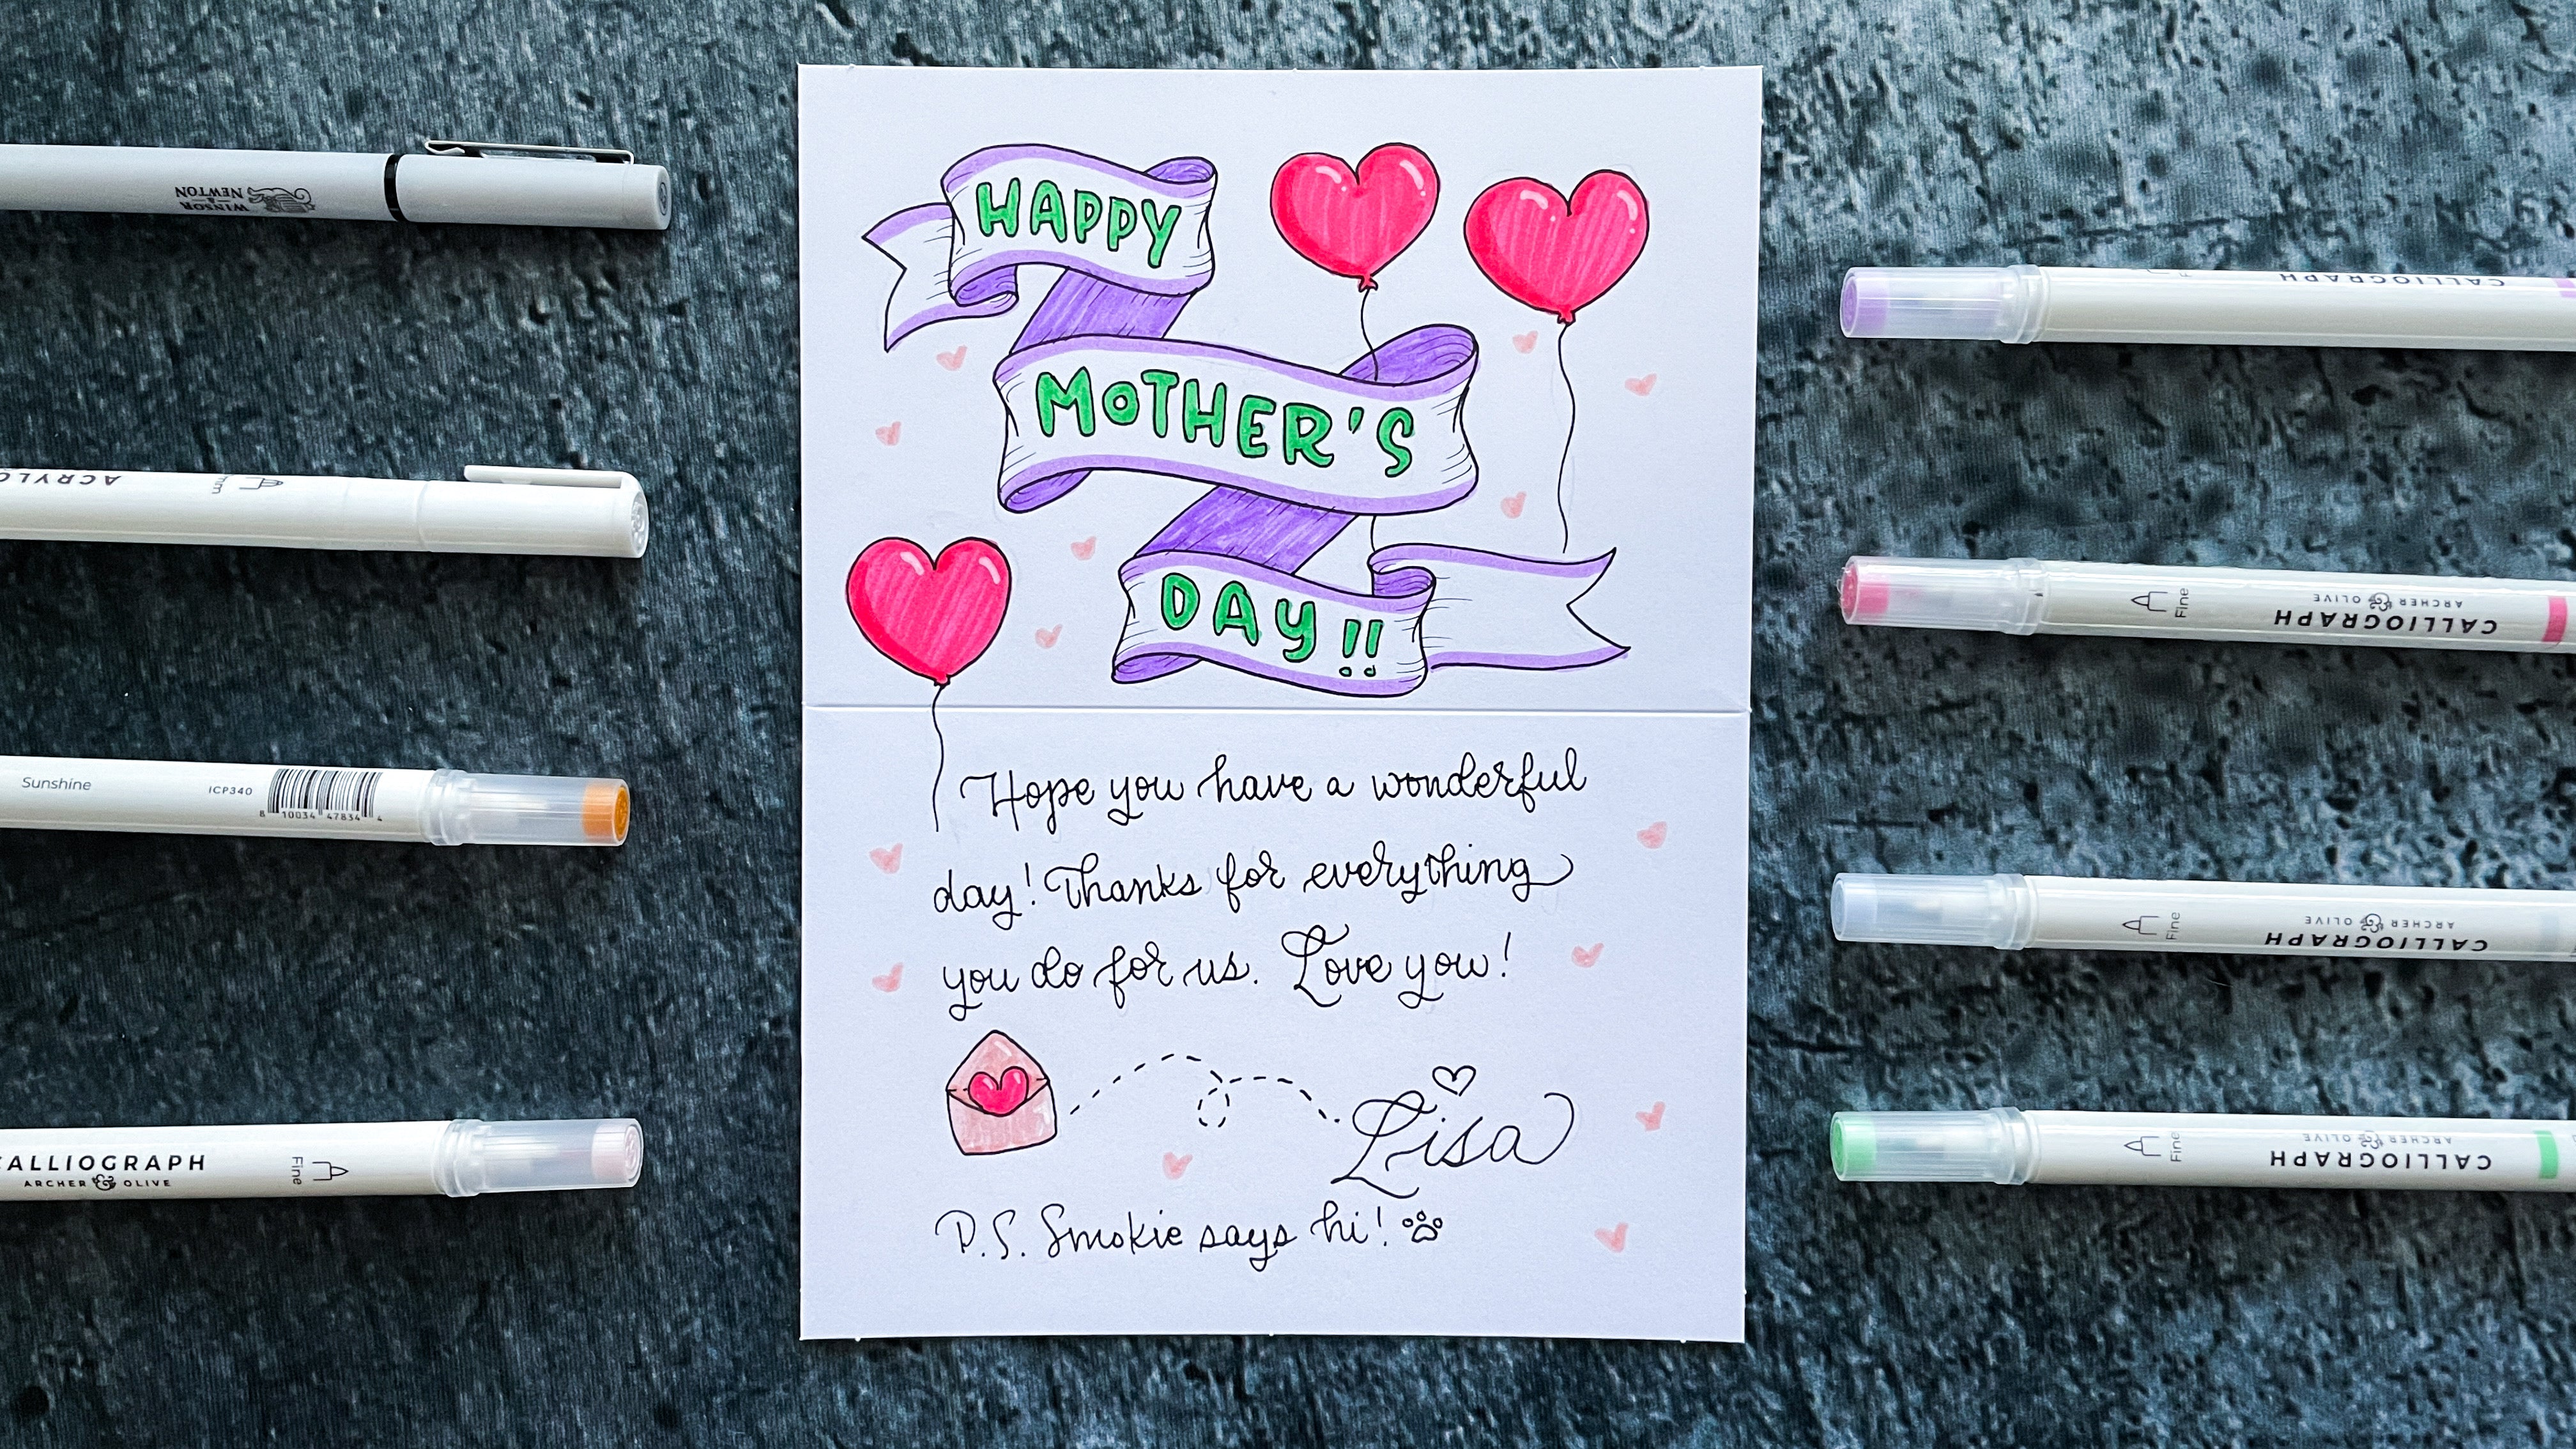 HAPPY
MOTHER'S
DAY!!
Hope you have a wonderful
day! Thanks for everything
you do for us. Love you!
Lisa
P.S. Smokie says hi!
WINSOR
&
NEWTON
mm
Sunshine
ICP340
8 10034 47834 4
CALLIOGRAPH
ARCHER & OLIVE
Fine
CALLIOGRAPH
Fine
ARCHER & OLIVE
CALLIOGRAPH
Fine
ARCHER & OLIVE
CALLIOGRAPH
Fine
ARCHER & OLIVE
CALLIOGRAPH